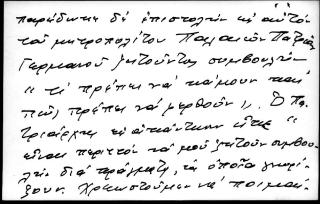 παρέδωκε δὲ ἐπιστολὴν εἰς αὐτὸν
τοῦ μητροπολίτου Παλαιῶν Πατρῶν
Γερμανοῦ ζητοῦντος συμβουλὴν
" τί πρέπει νὰ κάμουν καὶ
πῶς πρέπει νὰ φερθοῦν ". Ὁ Πα-
τριάρχης εἰς ἀπάντησιν εἶπε "
εἶναι περιττὸν νὰ μοῦ ζητοῦν συμβου-
λὴν διὰ πράγματα, τὰ ὁποῖα γνωρί-
ζουν. Χρεωστοῦμεν νὰ ποιμαί-